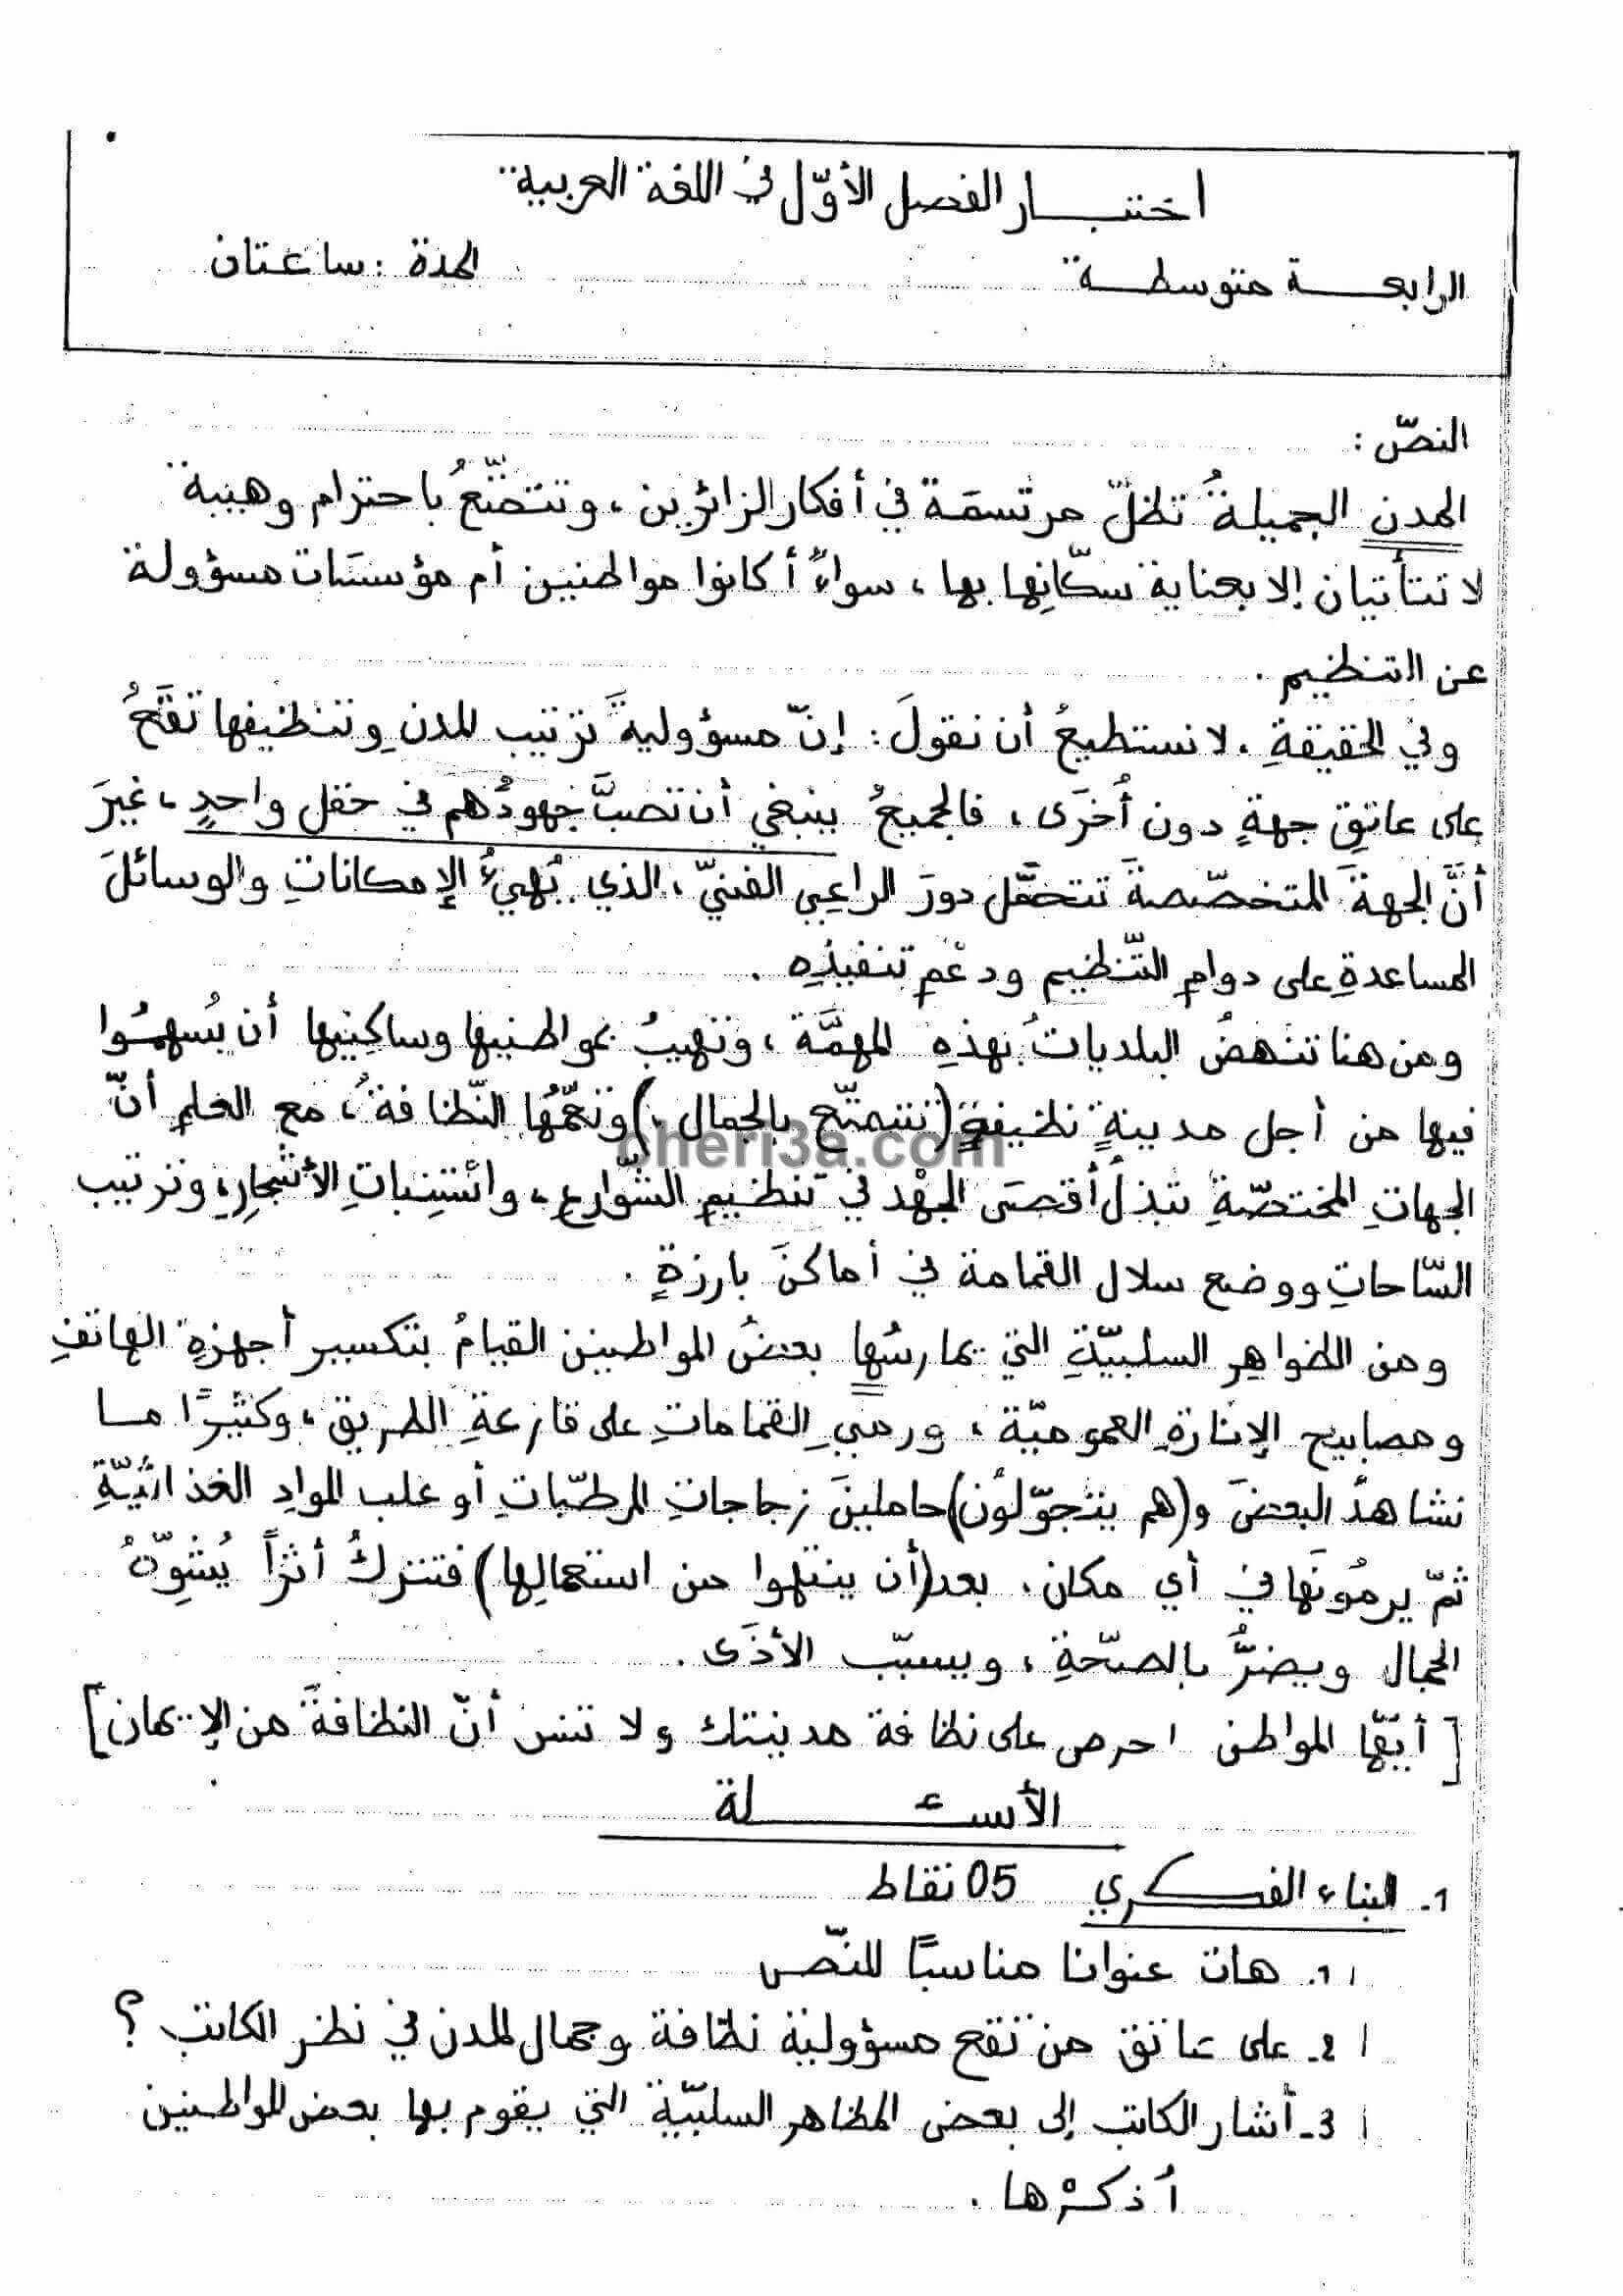 اختبار الفصل الأوّل في اللغة العربية
الرابعة متوسطة
المدة : ساعتان
النصّ :
المدن الجميلةُ تظلّ مرتسمَة في أفكار الزائرين ، وتتمتّعُ باحترام وهيبة
لا تتأتيان إلا بعناية سكّانِها بها ، سواءً أكانوا مواطنين أم مؤسسَات مسؤولة
عن التنظيم .
وفي الحقيقةِ ، لا نستطيعُ أن نقولَ : إنّ مسؤوليةَ ترتيب المدنِ وتنظيفها تقَعُ
على عاتِقِ جهةٍ دون أُخرَى ، فالجميعُ ينبغي أن تصبَّ جهودُهم في حقل واحدٍ ، غيرَ
أنَّ الجهةَ المتخصّصةَ تتحمَّل دورَ الراعِي الفنيّ ، الذي يُهيءُ الإمكاناتِ والوسائلَ
المساعدةِ على دوامِ التّنظيم ودعْمِ تنفيذِهِ .
ومن هنا تنهضُ البلدياتُ بهذهِ المهمَّة ، وتهيبُ بمواطنيها وساكِنِيها أن يُسهمُوا
فيها من أجل مدينةٍ نظيفةٍ (تتمتّع بالجمال ،) وتعمُّها النّظافةُ ، مع العلمِ أنّ
cheri3a.com
الجهاتِ المختصّةِ تبذلُ أقصَى الجهْد في تنظيمِ الشّوارعِ ، واسْتِنباتِ الأشْجارِ ، وترتيب
السّاحاتِ ووضع سلال القمامة في أماكنَ بارزةٍ .
ومن الظواهِرِ السلبيّةِ التي يمارسُها بعضُ المواطنين القيامُ بتكسير أجهزةِ الهاتفِ
ومصابيح الإنارةِ العموميّة ، ورميِ القماماتِ على قارعةِ الطريق ، وكثيرًا ما
نشاهدُ البعضَ و(هم يتجوّلُون) حاملينَ زجاجاتِ المرطّباتِ أو علب الموادِ الغذائيّةِ
ثمّ يرمُونَها في أي مكان ، بعد (أن ينتهوا من استعمالِها) فتتركُ أثراً يُشوّهُ
الجمال ويضرُّ بالصحّةِ ، ويسبّب الأذَى .
[ أيّهَا المواطن احرص على نظافة مدينتك ولا تنس أنّ النظافةَ من الإيمان ]
الأسئلة
1- البناء الفكري 05 نقاط
11. هات عنوانا مناسبًا للنّص
12- على عاتق من تقع مسؤولية نظافة وجمال المدن في نظر الكاتب ؟
13- أشار الكاتب إلى بعض المظاهر السلبيّة التي يقوم بها بعض المواطنين
أذكرْها .